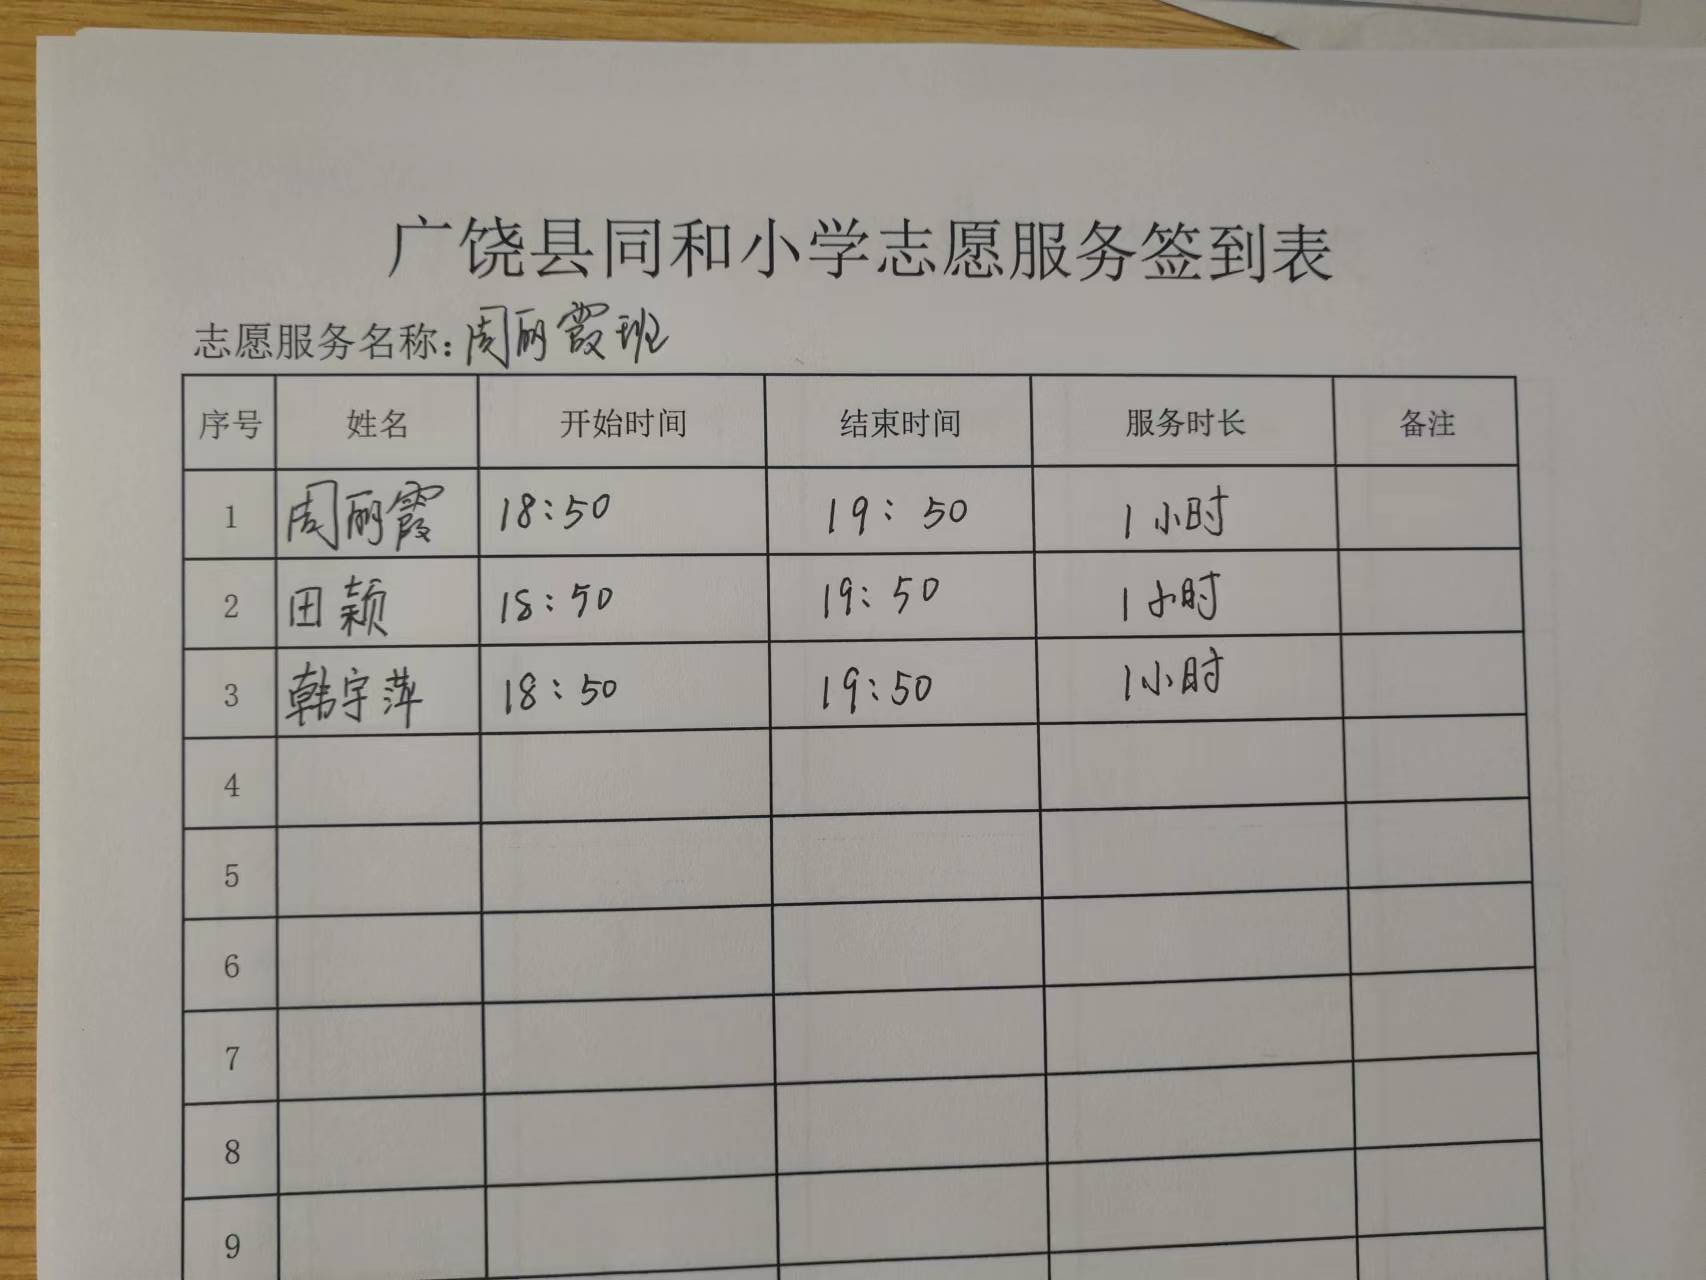 广饶县同和小学志愿服务签到表
志愿服务名称:周丽霞班
序号 姓名 开始时间 结束时间 服务时长 备注
1 周丽霞 18:50 19:50 1小时
2 田颖 18:50 19:50 1小时
3 韩宇萍 18:50 19:50 1小时
4
5
6
7
8
9